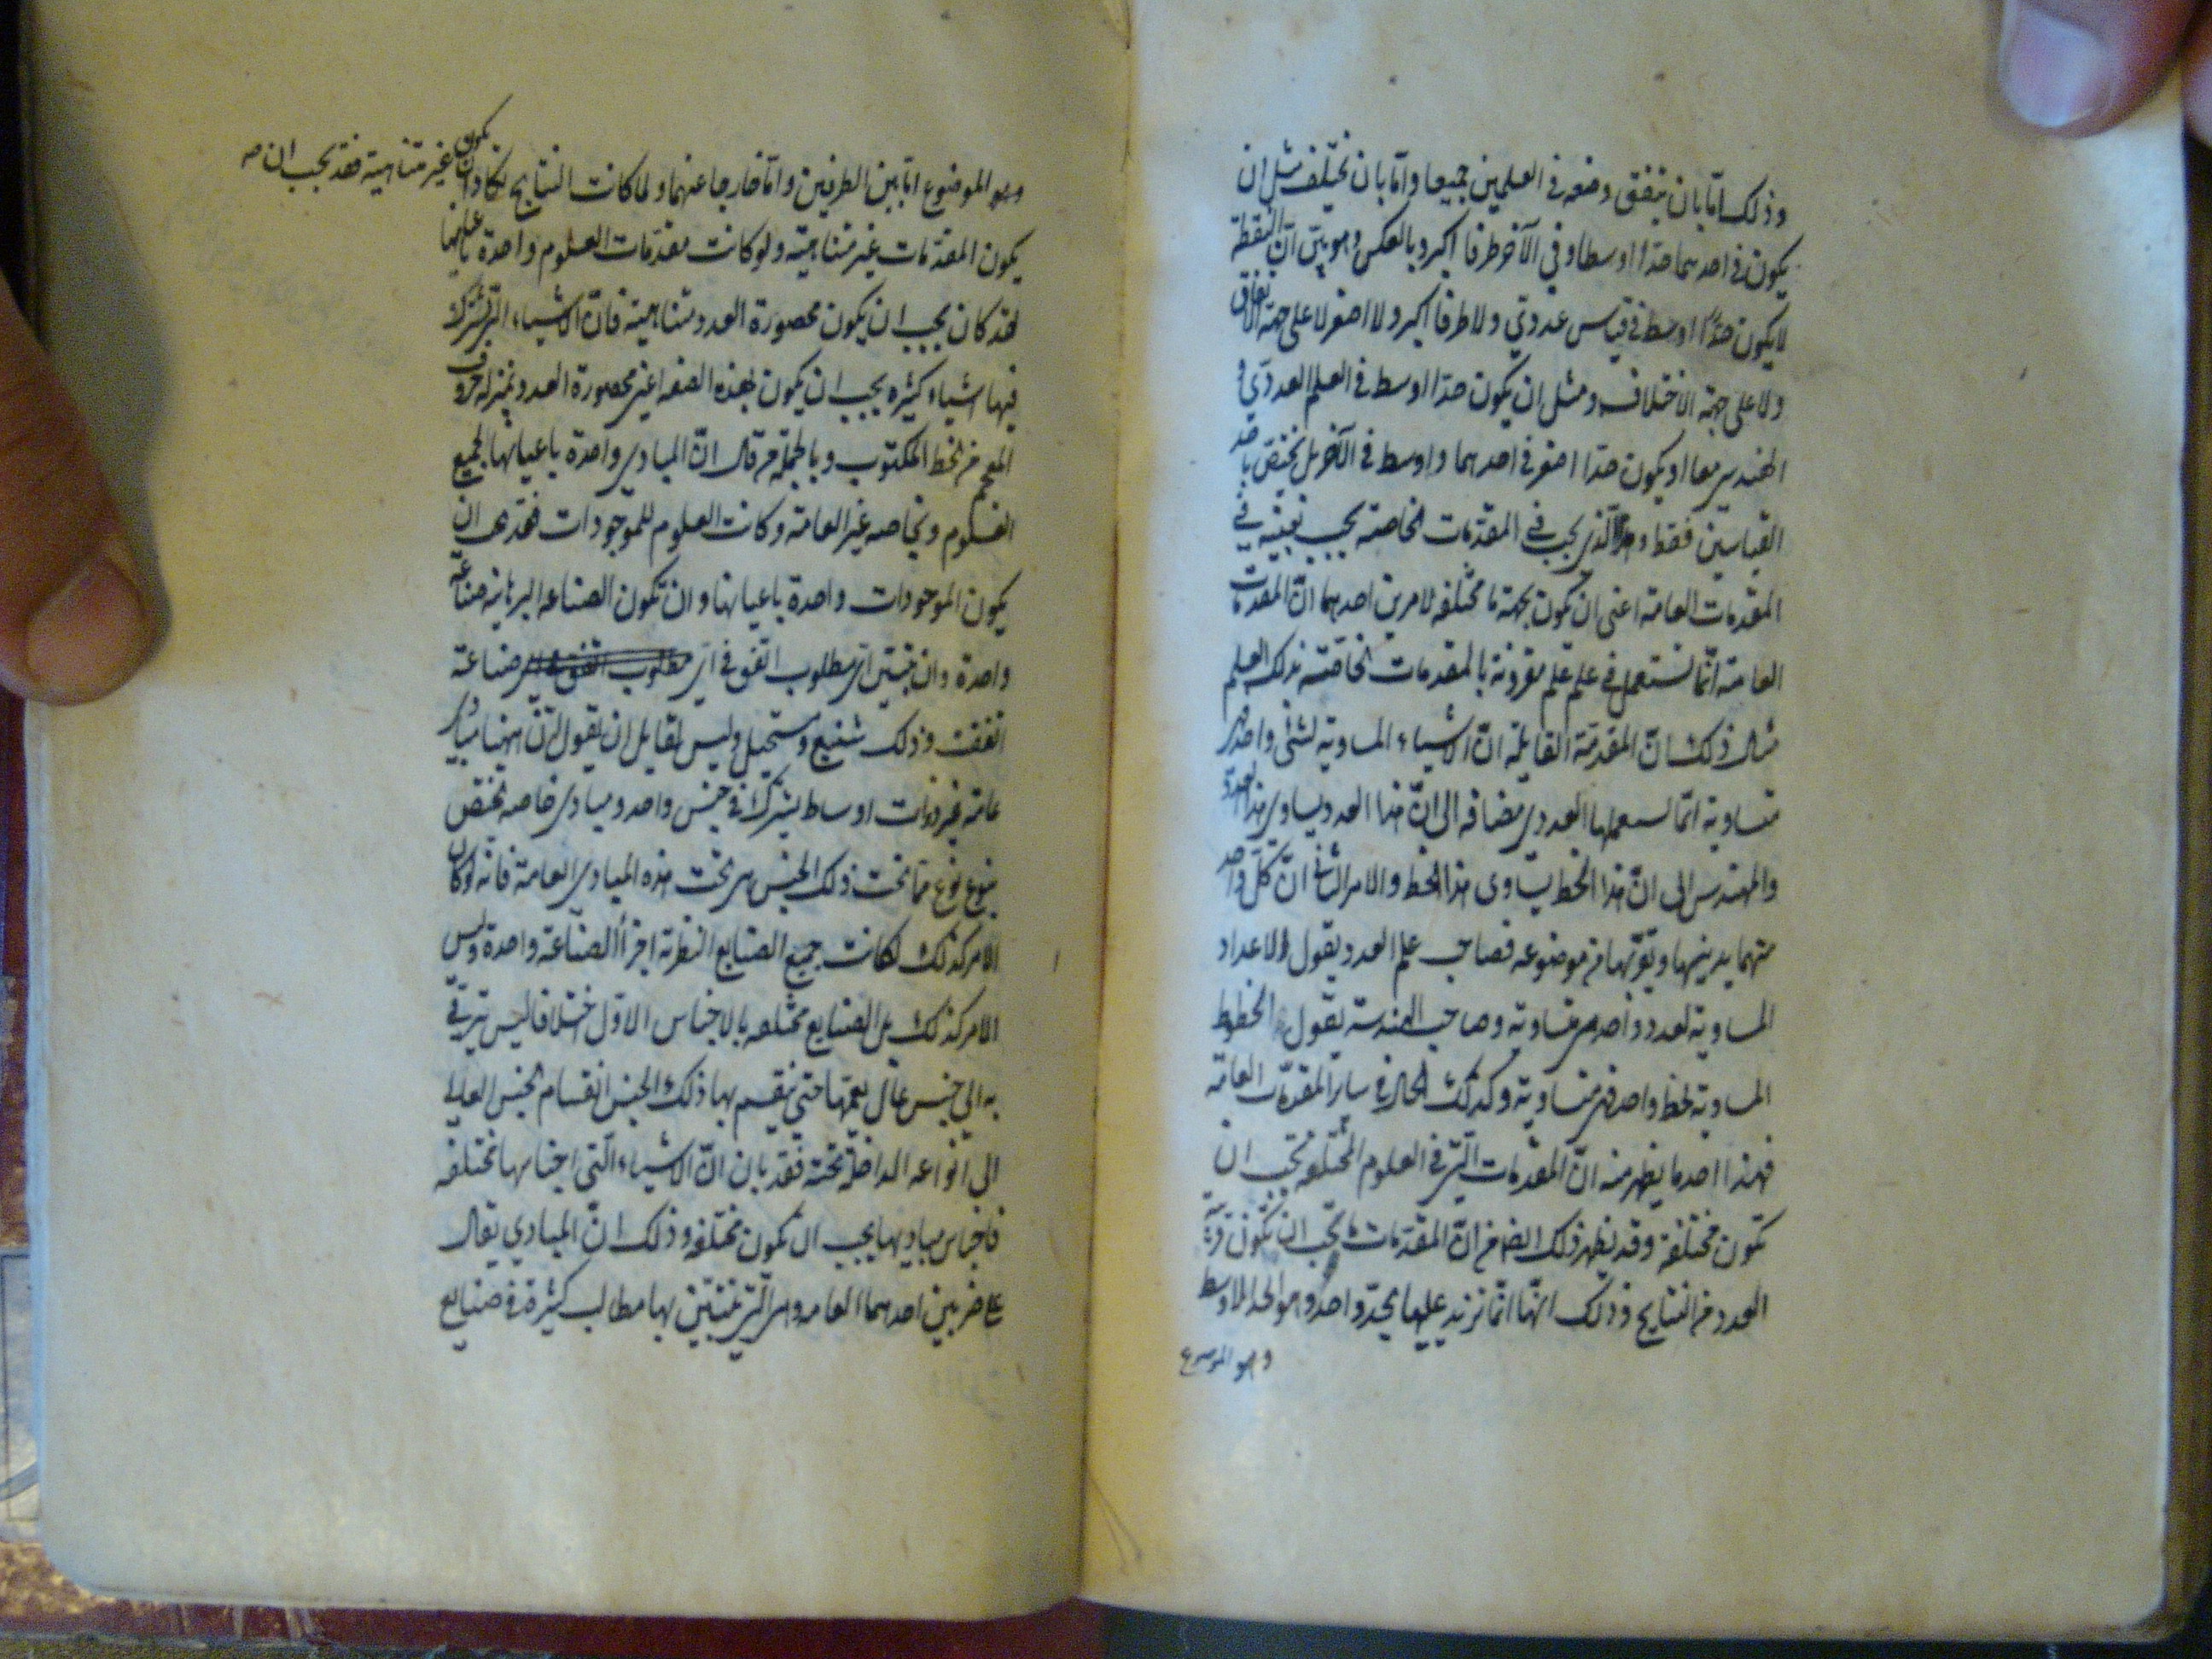 وذلك امّا بان يتفق وضعه في العلمين جميعا وامّا بان يختلف مثل ان
يكون في احدهما حدّا اوسطا وفي الآخر طرفا اكبر وبالعكس وهو بيّن انّ النقطة
لا يكون حدّا اوسط في قياس عددىّ ولا طرفا اكبر ولا اصغر لا على جهة الاتفاق
ولا على جهة الاختلاف ومثل ان يكون حدّا اوسط في العلم العددىّ و
الهندسى معا او يكون حدّا اصغر في احدهما واوسط في الآخر بل يختص باحد
القياسين فقط وهذا الّذى يجب في المقدّمات الخاصة يجب بعينه في
المقدمات العامة اعنى ان تكون بجهة ما مختلفة لامرين احدهما انّ المقدمات
العامة انّما تستعمل في علم علم مقرونة بالمقدمات الخاصّة بذلك العلم
مثال ذلك انّ المقدمة القايلة انّ الاشياء المساوية لشئ واحد فهى
متساوية انّما يستعملها العددى مضافه الى انّ هذا العدد يساوى هذا العدد
والمهندس الى انّ هذا الخط يساوى هذا الخط والامر الثانى انّ كلّ واحد
منهما يدينها ويقرّبها من موضوعه فصاحب علم العدد يقول الاعداد
المساوية لعدد واحد هى متساوية وصاحب الهندسة يقول الخطوط
المساوية لخط واحد فهى متساوية وكذلك الحال في ساير المقدّمات العامّة
فهذا احد ما يظهر منه انّ المقدّمات الّتى في العلوم المختلفة يجب ان
تكون مختلفة وقد يظهر ذلك ايضا من انّ المقدّمات يجب ان تكون قريبة
العدد من النتايج وذلك انّها انّما تزيد عليها بحدّ واحد وهو الحد الاوسط
وهو الموضوع
وهو الموضوع امّا بين الطرفين وامّا خارجا عنهما ولما كانت النتايج تكاد ان يكون غير متناهية فقد يجب ان صح
يكون المقدّمات غير متناهية ولو كانت مقدّمات العلوم واحدة باعيانها
لقد كان يجب ان يكون محصورة العدد متناهية فانّ الاشياء الّتى تشترك
فيها اشياء كثيره يجب ان يكون بهذه الصفه اعنى محصورة العدد بمنزلة حروف
المعجم من الخط المكتوب وبالجملة من قال انّ المبادى واحدة باعيانها لجميع
العلوم وبخاصه غير العامة وكانت العلوم للموجودات فقد يرى ان
يكون الموجودات واحدة باعيانها وان تكون الصناعه البرهانيه صناعة
واحدة وان يتبيّن اىّ مطلوب اتفق في اىّ صناعة
اتفقت وذلك شنيع ومستحيل وليس لقايل ان يقول انّ هيهنا مبادى
عامّة غير ذوات اوساط يشترك في جنس واحد ومبادى خاصه يختص
بنوع نوع ممّا تحت ذلك الجنس هى تحت هذه المبادى العامة فانّه لو كان
الامر كذلك لكانت جميع الصنايع النظرية اجزاء الصناعة واحدة وليس
الامر كذلك بل الصنايع مختلفه بالاجناس الاول اختلافا ليس يترقى
به الى جنس عال يعمّها حتى ينقسم بها ذلك الجنس انقسام الجنس العالى
الى انواعه الداخلة تحته فقد بان انّ الاشياء الّتى اجناسها مختلفه
فاجناس مباديها يجب ان تكون مختلفه وذلك انّ المبادى يقال
على ضربين احدهما العامه وهى الّتى تتبيّن بها مطالب كثيرة في صنايع